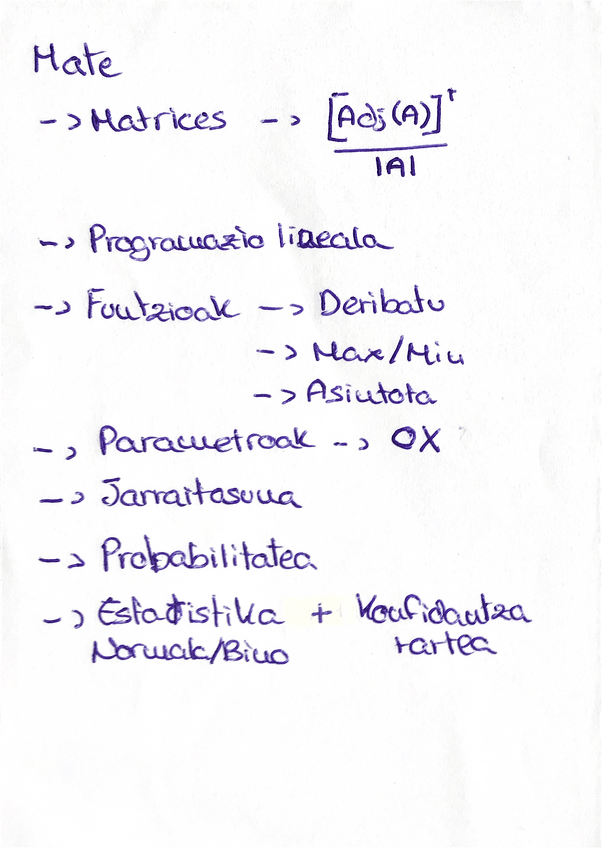 Mate
-> Matrices -> [Adj(A)]^t / |A|
-> Programazio lineala
-> Funtzioak -> Deribatu
-> Max/Min
-> Asintota
-> Parametroak -> OX ?
-> Jarraitasuna
-> Probabilitatea
-> Estadistika + Konfidantza
Normala/Bino tartea